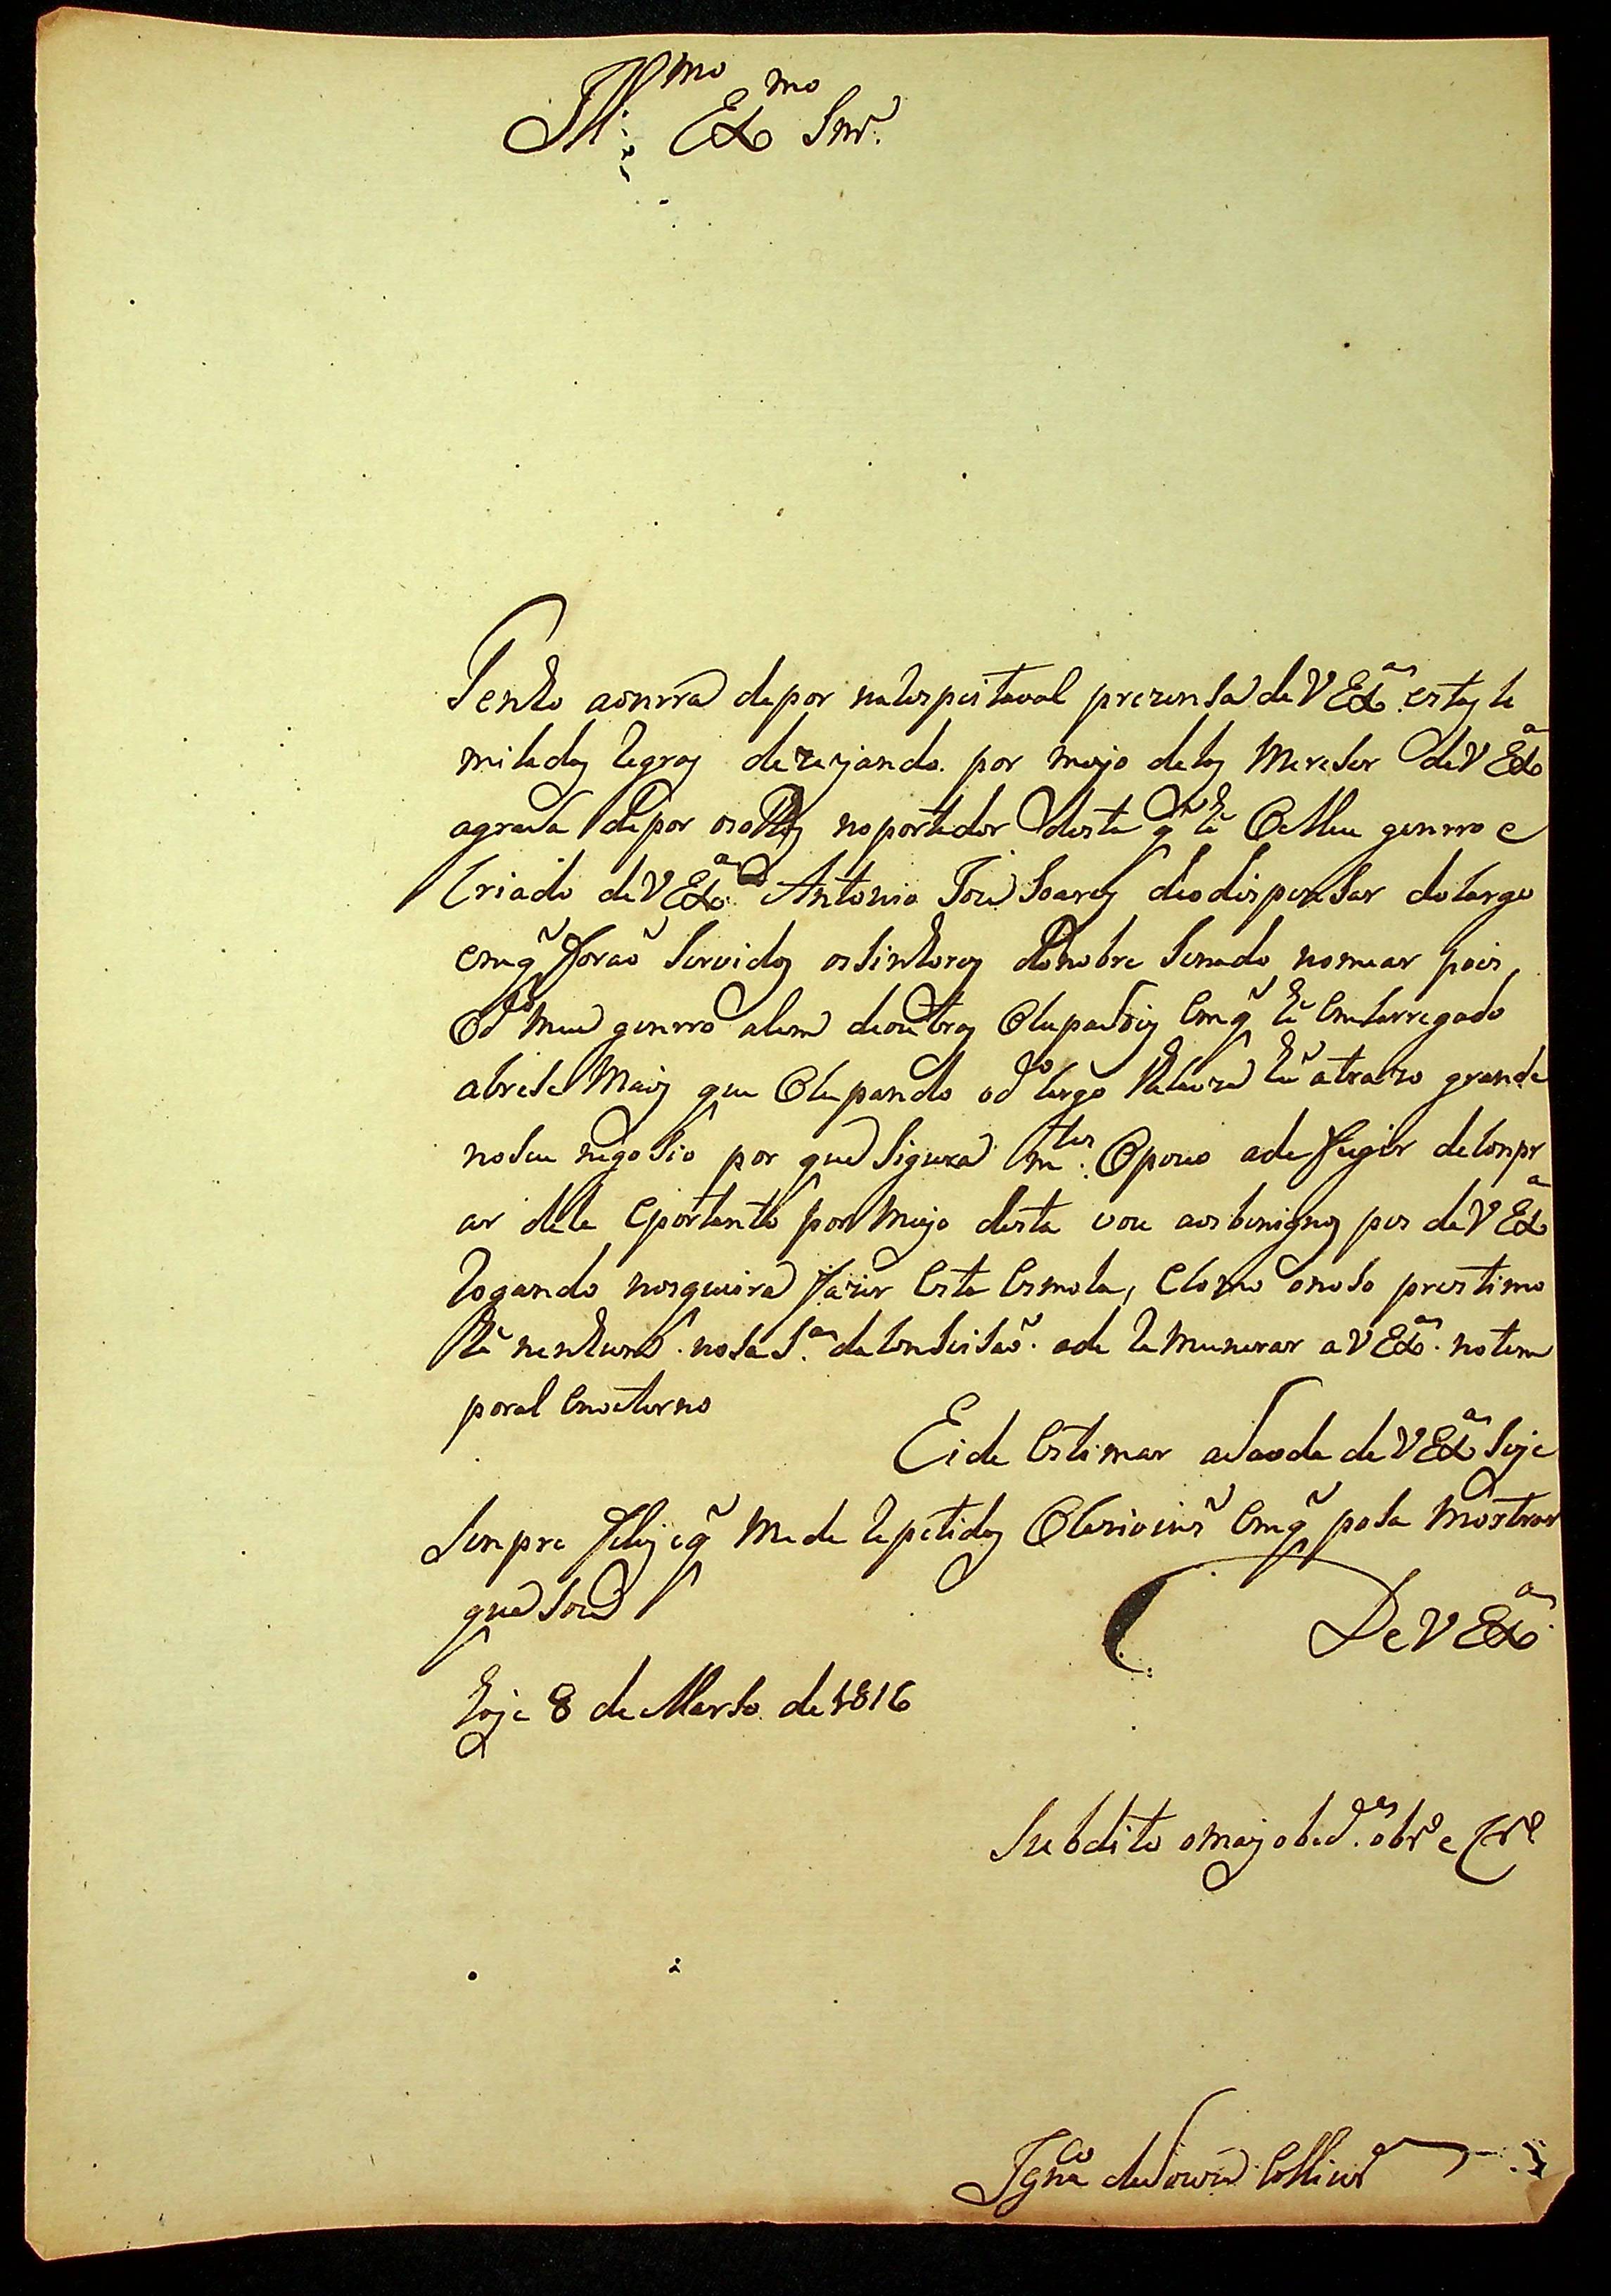 Ill.mo Ex.mo Snr.
Tenho aonrra depor nalespeitavel prezensa de V Exa. estas le
mitadas legras dezejando por mejo delas Mereser de V Exa
agrasa depor osolhos noportador desta q he O Meu genrro e
Criado de V Exa. Antonio Joze Soares deodispensar docargo
emq forão Servidos osSinhores donobre Senado nomear pois,
Od.o Meu genrro alem deoutras Ocupasois Em q he Emcarregado
acrese Mais que Ocupando od.o cargo lhecauza hũ atrazo grande
noseu negosio por que Sigura m.tes Opovo adefugir deconpr
ar dele Eportanto por Mejo desta vou aosbenignos pes de V Exa
logando nosqueira fazer Esta Esmola, Ecomo onoso prestimo
he nenhum nosa S.a daConseisão ade lemunerar a V Exa. notem
poral Enoeterno
Eide Estimar asaode de V Exa Seje
Senpre felis eq Mede lepetidas Ocazioins Emq posa Mostrar
que Sou
De V Exa.
hoje 8 de Marso de 1816
Subdito omais obed.e obr.o e Cr.o
Ign.co deSouza